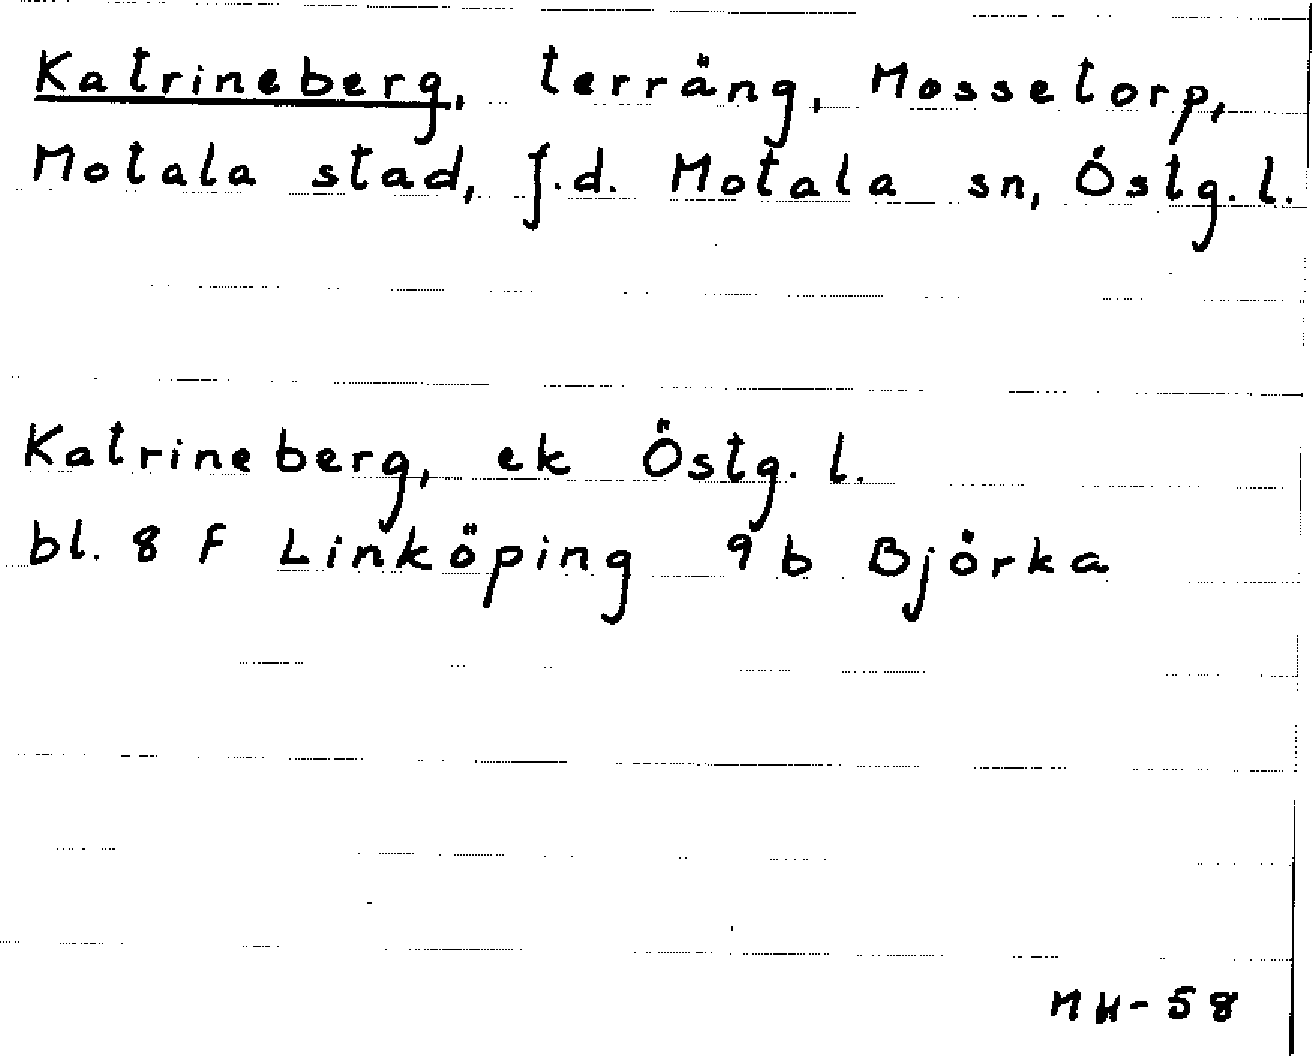 Katrineberg, terräng, Mossetorp,
Motala stad, f.d. Motala sn, Östg. l.
Katrineberg, ek Östg. l.
bl. 8 F Linköping 9b Björka
MH-58